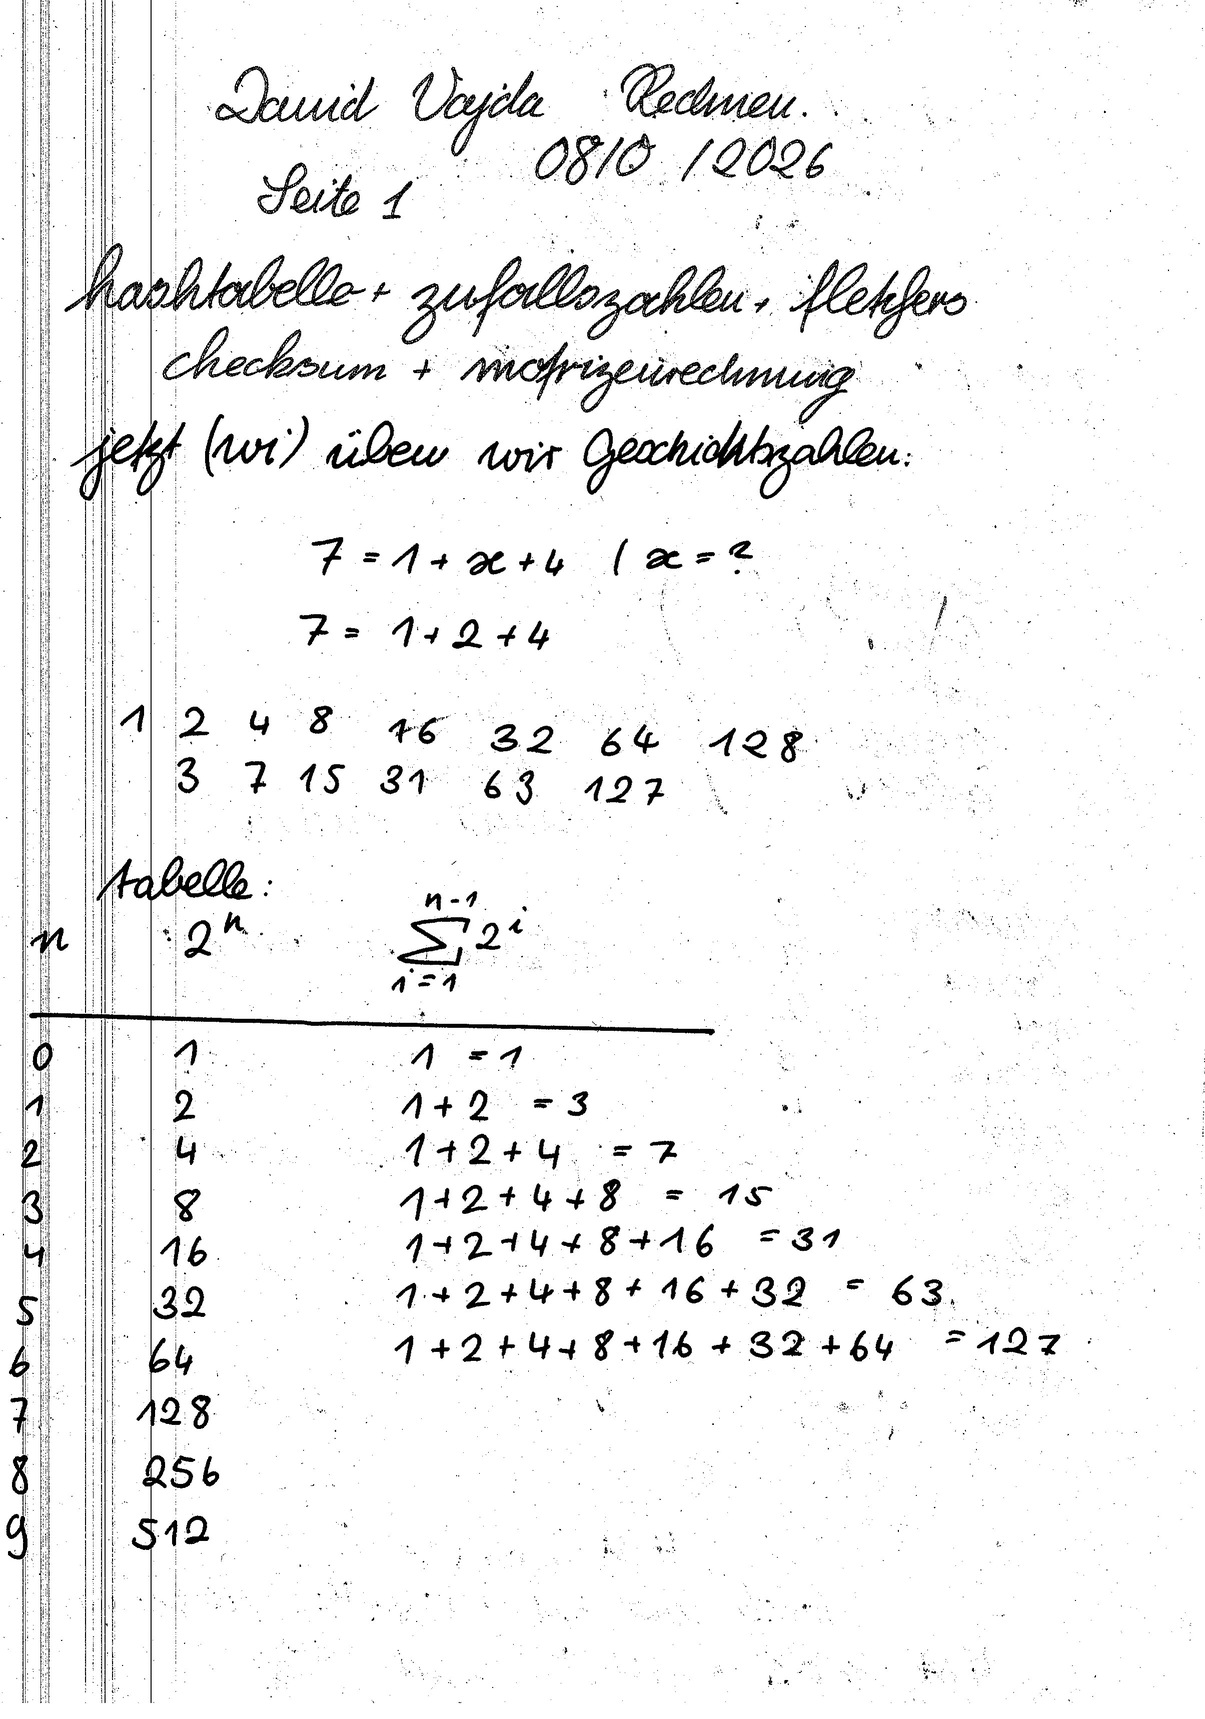 David Vajda Rechnen.
08/0 /2026
Seite 1
hashtabelle + zufallszahlen + fletchers
checksum + matrizenrechnung
jetzt (wi) üben wir Geschichtszahlen:
7 = 1 + x + 4 | x = ?
7 = 1 + 2 + 4
1 2 4 8 16 32 64 128
3 7 15 31 63 127
tabelle:
n 2^n ∑_{i=1}^{n-1} 2^i
0 1 1 = 1
1 2 1 + 2 = 3
2 4 1 + 2 + 4 = 7
3 8 1 + 2 + 4 + 8 = 15
4 16 1 + 2 + 4 + 8 + 16 = 31
5 32 1 + 2 + 4 + 8 + 16 + 32 = 63
6 64 1 + 2 + 4 + 8 + 16 + 32 + 64 = 127
7 128
8 256
9 512